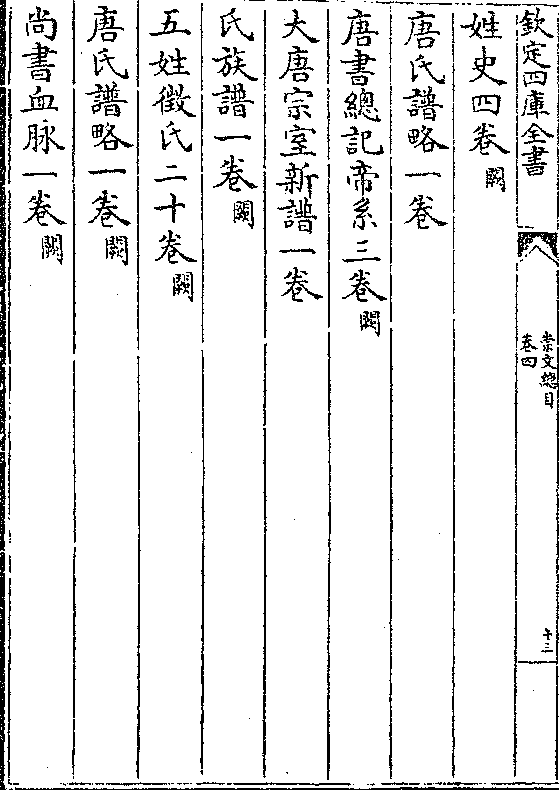 欽定四庫全書
崇文總目
卷四
十三
姓史四卷闕
唐氏譜略一卷
唐書總記帝系三卷闕
大唐宗室新譜一卷
氏族譜一卷闕
五姓徵氏二十卷闕
唐氏譜略一卷闕
尚書血脉一卷闕